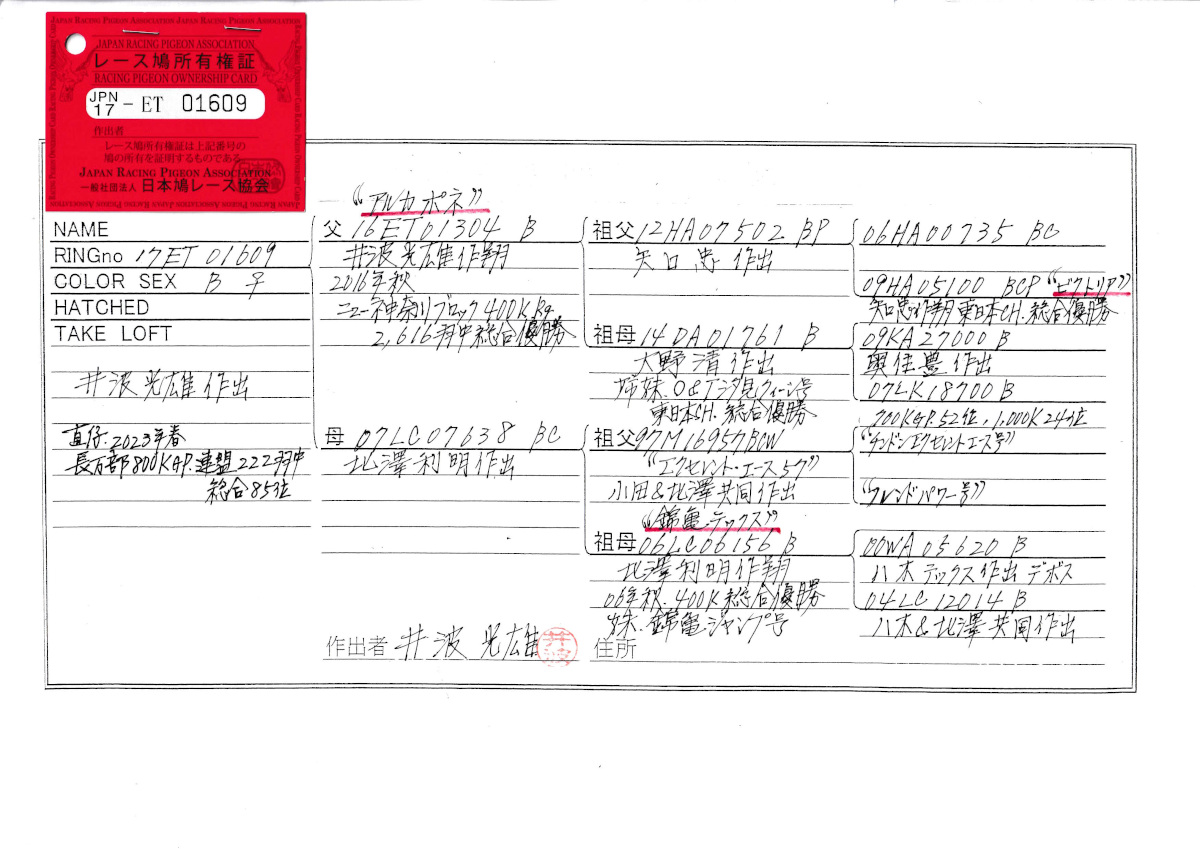 JAPAN RACING PIGEON ASSOCIATION
レース鳩所有権証
RACING PIGEON OWNERSHIP CARD
JPN 17 - ET 01609
作出者
レース鳩所有権証は上記番号の
鳩の所有を証明するものである。
JAPAN RACING PIGEON ASSOCIATION
一般社団法人 日本鳩レース協会
NAME
RINGno 17ET 01609
COLOR SEX B ♀
HATCHED
TAKE LOFT
井波光雄作出
直仔.2023年春
長万部800KGP.連盟222羽中
総合85位
"アルカポネ"
父 16ET01304 B
井波光雄作翔
2016年秋
ニュー神奈川ブロック400K.Kg
2,616羽中総合優勝
母 07LC07638 BC
北澤利明作出
作出者 井波光雄
祖父 12HA07502 BP
矢口忠作出
祖母 14DA01761 B
大野清作出
姉妹.O&Tシダ見クィーン号
東日本CH.総合優勝
祖父 97M16957BCW
"エクセレント・エース57"
小田&北澤共同作出
"錦亀テックス"
祖母 06LC06156 B
北澤利明作翔
06年秋.400K総合優勝
妹.錦亀ジャンプ号
住所
06HA00735 BC
09HA05100 BCP "ビクトリア"
東日本CH.総合優勝
09KA27000 B
奥住豊作出
07LK18700 B
700KGP.52位,1,000K24位
"フレンドパワー号"
00WA05620 B
八木テックス作出 デボス
04LC12014 B
八木&北澤共同作出